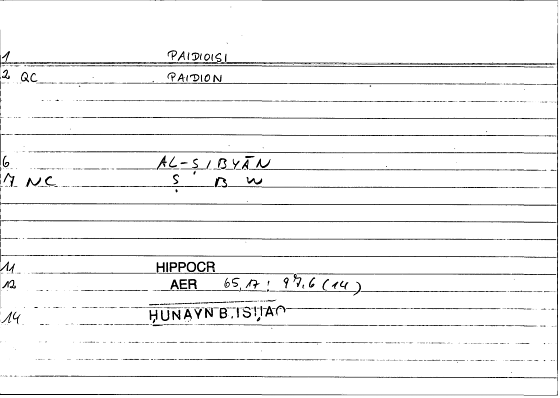 1 PAIDIOISI
2 QC PAIDION
6 AL-ṢIBYĀN
7 NC Ṣ B W
11 HIPPOCR
12 AER 65,17 : 97,6 (14)
14 ḤUNAYN B. ISḤĀQ